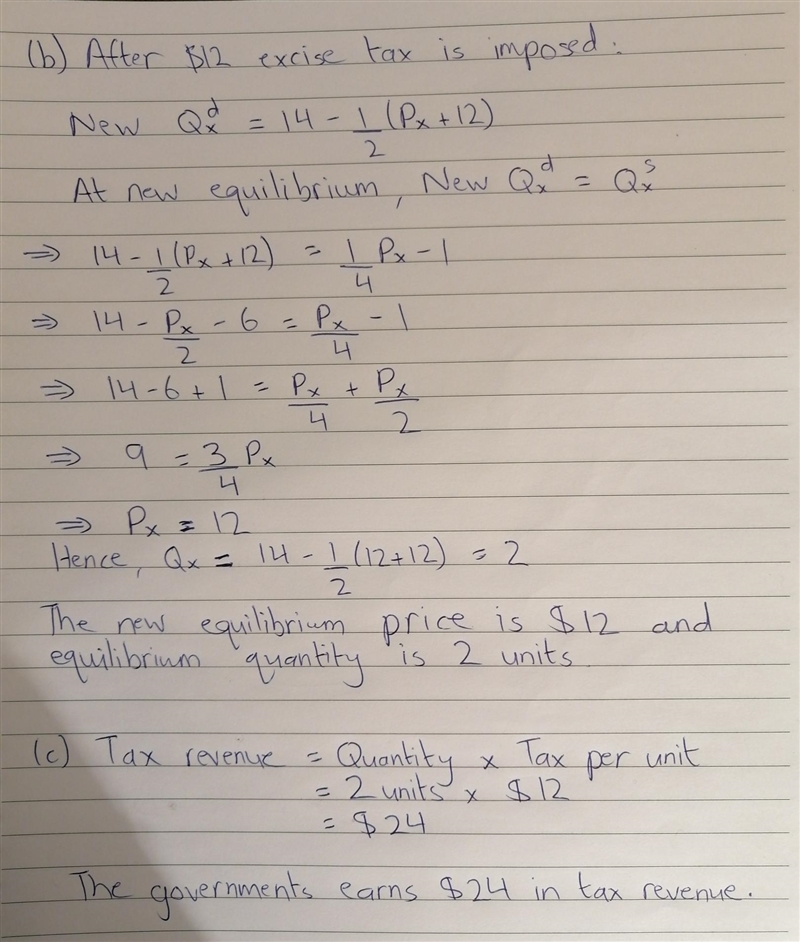 (b) After $12 excise tax is imposed:
New Qₓᵈ = 14 - 1/2 (Pₓ + 12)
At new equilibrium, New Qₓᵈ = Qₓˢ
⇒ 14 - 1/2 (Pₓ + 12) = 1/4 Pₓ - 1
⇒ 14 - Pₓ/2 - 6 = Pₓ/4 - 1
⇒ 14 - 6 + 1 = Pₓ/4 + Pₓ/2
⇒ 9 = 3/4 Pₓ
⇒ Pₓ = 12
Hence, Qₓ = 14 - 1/2 (12+12) = 2
The new equilibrium price is $12 and
equilibrium quantity is 2 units.
(c) Tax revenue = Quantity x Tax per unit
= 2 units x $12
= $24
The governments earns $24 in tax revenue.